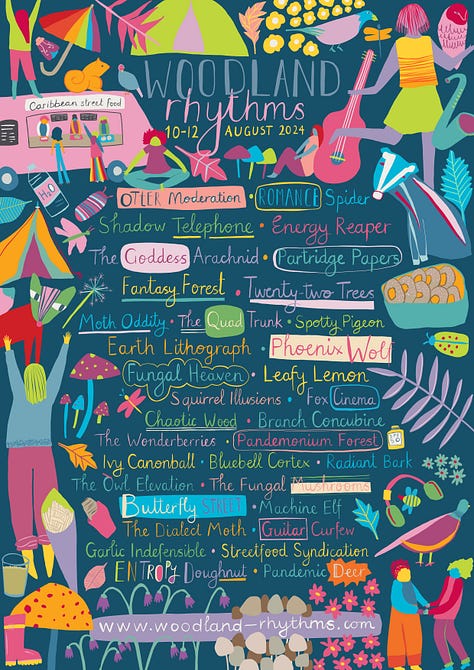 Caribbean street food
WOODLAND
rhythms
10-12 AUGUST 2024
H2O
OTLER Moderation • ROMANCE Spider
Shadow Telephone • Energy Reaper
The Goddess Arachnid • Partridge Papers
Fantasy Forest • Twenty-two Trees
Moth Oddity • The Quad Trunk • Spotty Pigeon
Earth Lithograph Phoenix Wolf
Fungal Heaven • Leafy Lemon
Squirrel Illusions • Fox Cinema
Chaotic Wood • Branch Concubine
The Wonderberries • Pandemonium Forest
Ivy Cannonball • Bluebell Cortex • Radiant Bark
The Owl Elevation • The Fungal Mushrooms
Butterfly STREET • Machine Elf
The Dialect Moth • Guitar Curfew
Garlic Indefensible • Streetfood Syndication
ENTROPY Doughnut • Pandemic Deer
www.woodland-rhythms.com